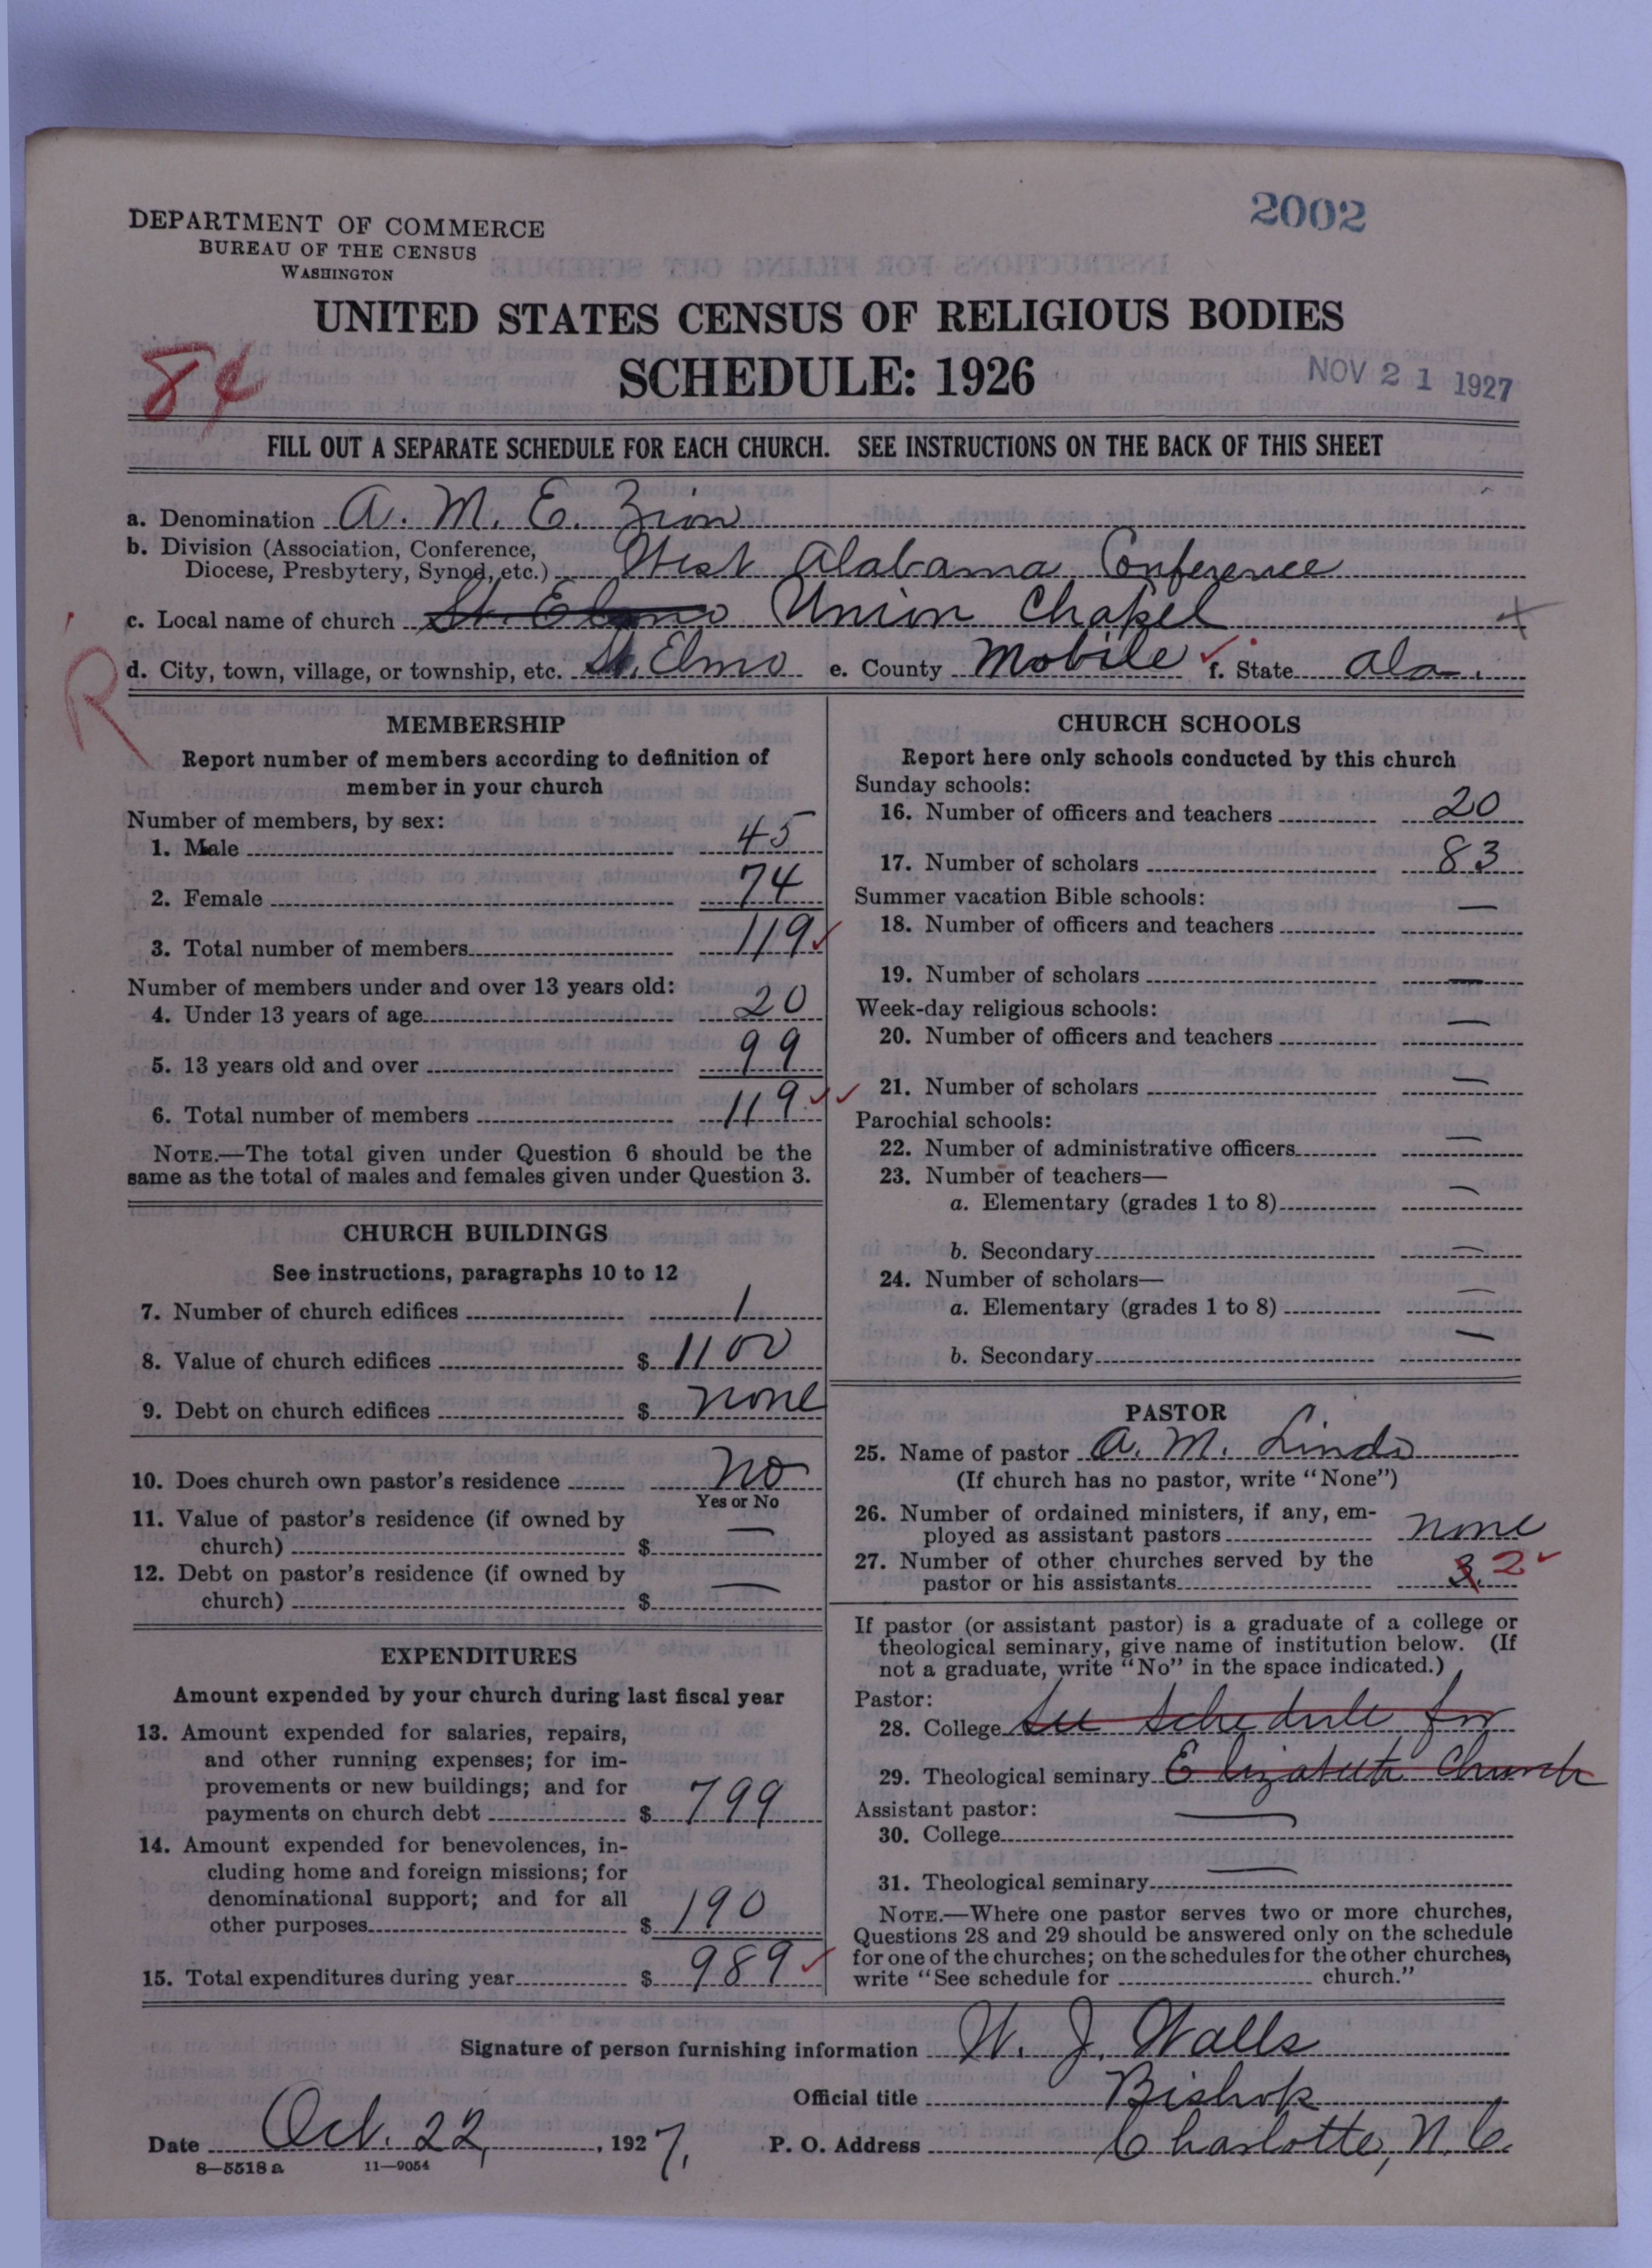 2002
DEPARTMENT OF COMMERCE
BUREAU OF THE CENSUS
WASHINGTON
UNITED STATES CENSUS OF RELIGIOUS BODIES
SCHEDULE: 1926
NOV 21 1927
84
FILL OUT A SEPARATE SCHEDULE FOR EACH CHURCH. SEE INSTRUCTIONS ON THE BACK OF THIS SHEET
a. Denomination A. M. E. Zion
b. Division (Association, Conference,
Diocese, Presbytery, Synod, etc.) West Alabama Conference
c. Local name of church St. Elmo Union Chapel
R
d. City, town, village, or township, etc. St. Elmo e. County Mobile f. State Ala.
MEMBERSHIP
Report number of members according to definition of
member in your church
Number of members, by sex:
1. Male 45
2. Female 74
3. Total number of members 119
Number of members under and over 13 years old:
4. Under 13 years of age 20
5. 13 years old and over 99
6. Total number of members 119
NOTE.—The total given under Question 6 should be the
same as the total of males and females given under Question 3.
CHURCH BUILDINGS
See instructions, paragraphs 10 to 12
7. Number of church edifices 1
8. Value of church edifices $ 1100
9. Debt on church edifices $ none
10. Does church own pastor's residence No
Yes or No
11. Value of pastor's residence (if owned by
church) $ —
12. Debt on pastor's residence (if owned by
church) $ —
EXPENDITURES
Amount expended by your church during last fiscal year
13. Amount expended for salaries, repairs,
and other running expenses; for im-
provements or new buildings; and for
payments on church debt $ 799
14. Amount expended for benevolences, in-
cluding home and foreign missions; for
denominational support; and for all
other purposes $ 190
15. Total expenditures during year $ 989
CHURCH SCHOOLS
Report here only schools conducted by this church
Sunday schools:
16. Number of officers and teachers 20
17. Number of scholars 83
Summer vacation Bible schools:
18. Number of officers and teachers —
19. Number of scholars —
Week-day religious schools:
20. Number of officers and teachers —
21. Number of scholars —
Parochial schools:
22. Number of administrative officers —
23. Number of teachers—
a. Elementary (grades 1 to 8) —
b. Secondary —
24. Number of scholars—
a. Elementary (grades 1 to 8) —
b. Secondary —
PASTOR
25. Name of pastor A. M. Lindo
(If church has no pastor, write "None")
26. Number of ordained ministers, if any, em-
ployed as assistant pastors none
27. Number of other churches served by the
pastor or his assistants 3 2
If pastor (or assistant pastor) is a graduate of a college or
theological seminary, give name of institution below. (If
not a graduate, write "No" in the space indicated.)
Pastor:
28. College See schedule for
29. Theological seminary Elizabeth Church
Assistant pastor:
30. College —
31. Theological seminary —
NOTE.—Where one pastor serves two or more churches,
Questions 28 and 29 should be answered only on the schedule
for one of the churches; on the schedules for the other churches,
write "See schedule for church."
Signature of person furnishing information W. J. Walls
Official title Bishop
Date Oct. 22, 1927. P. O. Address Charlotte, N. C.
8—5518 a 11—9054